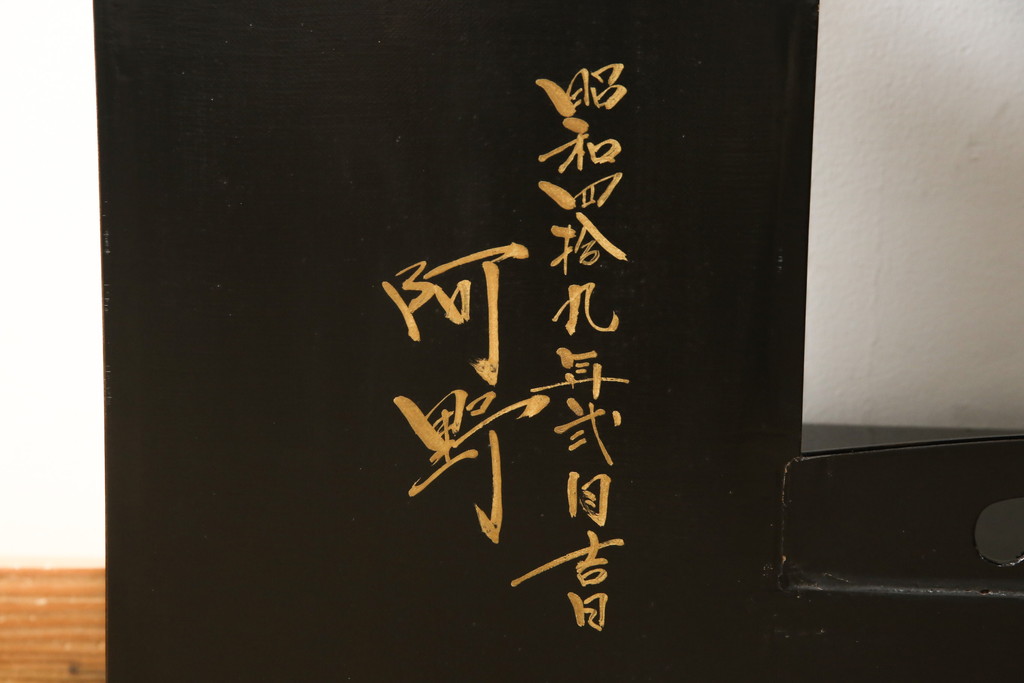 昭和四拾九年弐月吉日
阿野